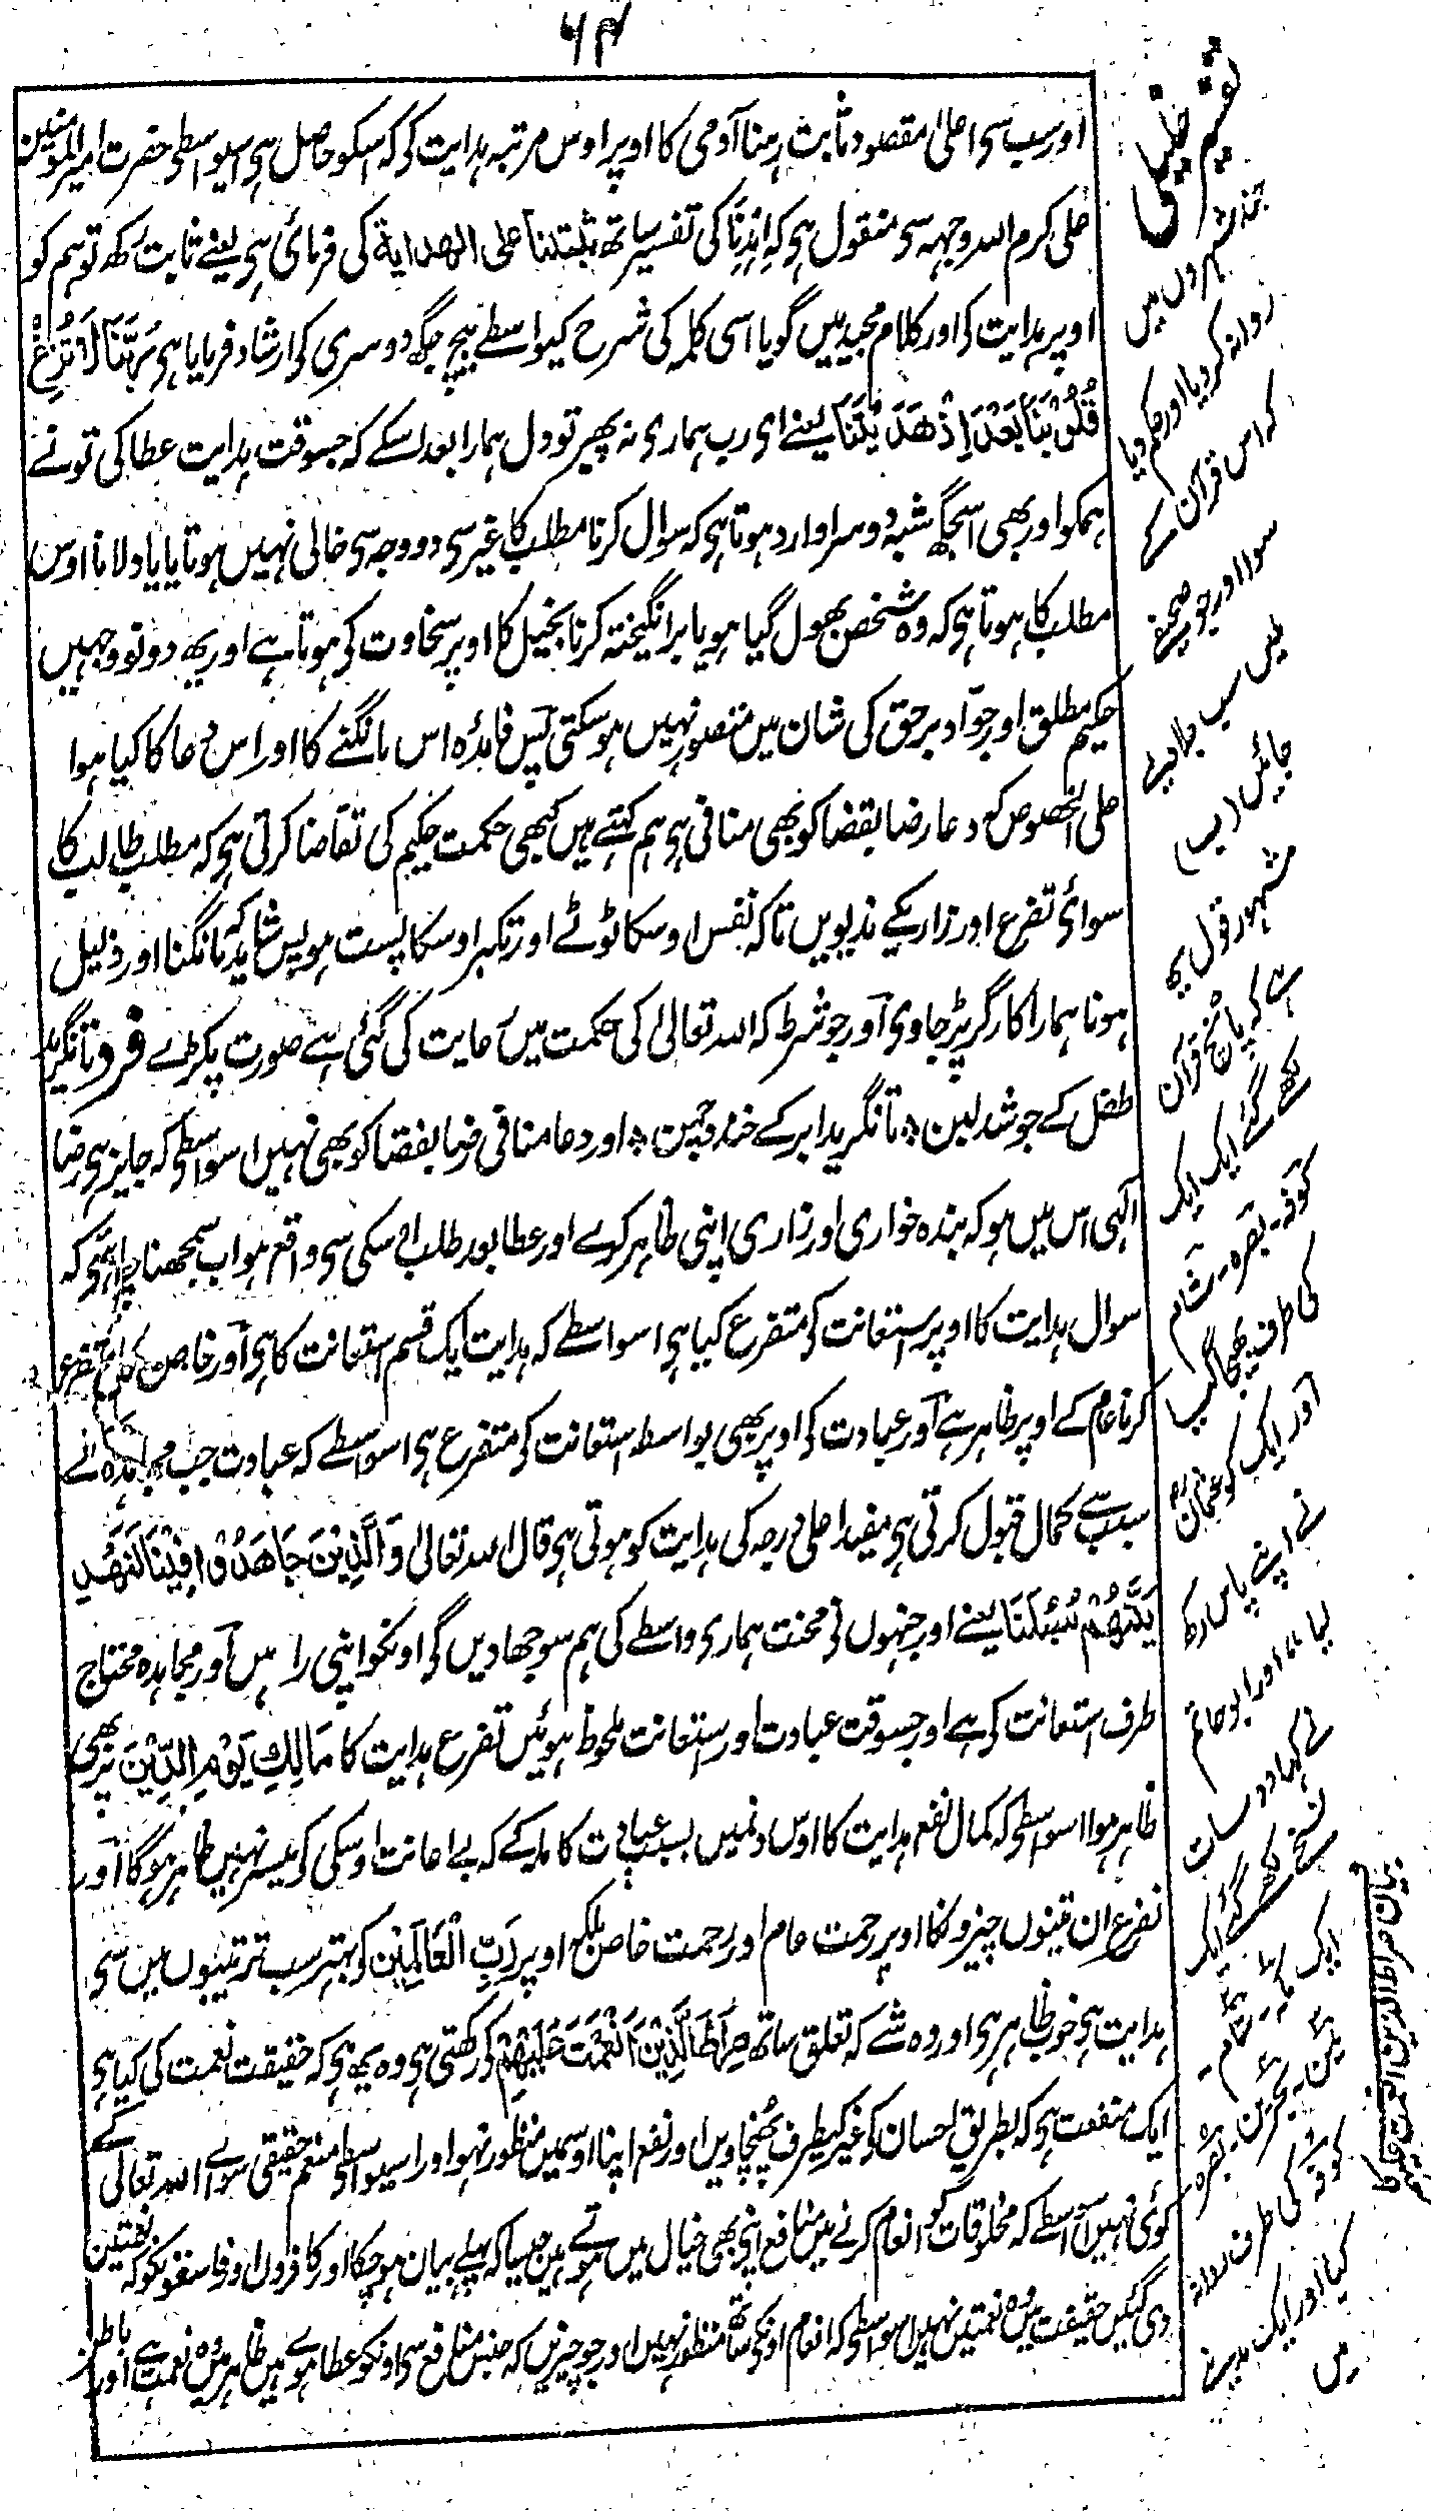 ۶۴
اور سب سی اعلیٰ مقصود ثابت رہنا آدمی کا اوپر اوس مرتبہ ہدایت کی کہ اسکو حاصل ہی اسیواسطی حضرت امیر المومنین
علی کرم اللہ وجہہ سی منقول ہی کہ اِہْدِنَا کی تفسیر ساتھ ثبتنا علی الھدایۃ کی فرمائی ہی یعنے ثابت رکھ تو ہم کو
اوپر ہدایت کی اور کلام مجید میں گویا اسی کلمہ کی شرح کیواسطے بیچ جگہ دوسری کی ارشاد فرمایا ہی رَبَّنَا لَا تُزِغْ
قُلُوْبَنَا بَعْدَ اِذْ ھَدَیْتَنَا یعنے ای رب ہماری نہ پھیر تو دل ہمارا بعد اسکے کہ جسوقت ہدایت عطا کی تونے
ہمکو اور بھی اسجگہ شبہ دوسرا وارد ہوتا ہی کہ سوال کرنا مطلب کا غیر سی دو وجہ سی خالی نہیں ہوتا یا یاد دلانا اوس
مطلب کا ہوتا ہی کہ وہ شخص بھول گیا ہو یا برانگیختہ کرنا بخیل کا اوپر سخاوت کی ہوتا ہے اور یہ دونو وجہیں
حکیم مطلق اور جوّاد برحق کی شان میں متصور نہیں ہو سکتی پس فائدہ اس مانگنے کا اور اس دعا کا کیا ہوا
علی الخصوص کہ دعا رضا بقضا کو بھی منافی ہی ہم کہتے ہیں کبھی حکمت حکیم کی تقاضا کرتی ہی کہ مطلب طالب کا
سوائی تضرع اور زاری کے ندیویں تاکہ نفس اوسکا ٹوٹے اور تکبر اوسکا پست ہو پس شاید کہ مانگنا اور ذلیل
ہونا ہمارا کارگر پڑ جاوی اور جو شرط کہ اللہ تعالیٰ کی حکمت میں رعایت کی گئی ہے صورت پکڑے فرد تا نگرید
طفل کے جوشد لبن ٭ تا نگرید ابر کے خندد چمن ٭ اور دعا منافی رضا بقضا کو بھی نہیں اسواسطی کہ جایز ہی رضا
الٰہی اس میں ہو کہ بندہ خواری اور زاری اپنی ظاہر کرے اور عطا بعد طلب اسکی سی واقع ہو اب سمجھنا چاہیٔے کہ
سوال ہدایت کا اوپر استعانت کی متفرع کیا ہی اسواسطے کہ ہدایت ایک قسم استعانت کا ہی اور خاص کا متفرع
کرنا عام کے اوپر ظاہر ہے اور عبادت کی اوپر بھی بواسطہ استعانت کی متفرع ہی اسواسطے کہ عبادت جب مجاہدہ کے
سبب سے کمال قبول کرتی ہی مفید اعلیٰ درجہ کی ہدایت کو ہوتی ہی قال اللہ تعالیٰ وَالَّذِیْنَ جَاھَدُوْا فِیْنَا لَنَھْدِ
یَنَّھُمْ سُبُلَنَا یعنے اور جنہوں نی محنت ہماری واسطے کی ہم سوجھا دیں گی اونکو اپنی راہیں اور مجاہدہ محتاج
طرف استعانت کی ہے اور جسوقت عبادت اور استعانت ملحوظ ہوئیں تفرع ہدایت کا مَالِکِ یَوْمِ الدِّیْنِ پر بھی
ظاہر ہوا اسواسطی کہ کمال نفع ہدایت کا اوس دنمیں بسبب عبادت کاملہ کے کہ بے اعانت اوسکی کی میسر نہیں ظاہر ہوگا اور
تفرع ان تینوں چیزونکا اوپر رحمت عام اور رحمت خاص بلکہ اوپر رَبِّ الْعَالَمِیْنَ کی بہتر سب تربیتوں میں سی
ہدایت ہی خوب ظاہر ہی اور وہ شے کہ تعلق ساتھ صِرَاطَ الَّذِیْنَ اَنْعَمْتَ عَلَیْھِمْ کی رکھتی ہی وہ یہ ہی کہ حقیقت نعمت کی کیا ہی
ایک منفعت ہی کہ بطریق احسان کی غیر کیطرف پہنچاویں اور نفع اپنا اوسمیں منظور نہو اور اسیواسطی منعم حقیقی سوائے اللہ تعالیٰ کے
کوئی نہیں اسواسطے کہ مخلوقات کو انعام کرنے میں منافع اپنی بھی خیال میں ہوتے ہیں جیسا کہ پہلے بیان ہو چکا اور کافروں اور فاسقونکو کہ نعمتیں
دی گئیں حقیقت میں وہ نعمتیں نہیں اسواسطی کہ انعام اونکی ساتھ منظور نہیں اور جو چیزیں کہ جنس منافع سی اونکو عطا ہوے ہیں ظاہر میں نعمت ہے اور باطن
جدے شہروں میں
روانہ کر دیا اور حکم دیا
کہ اس قرآن کے
سوا اور جو صحیفے
ہیں سب جلا دیے
جائیں
مشہور قول یہ
ہے کہ پانچ قرآن
لکھے گئے ایک ایک
کوفہ ۔ بصرہ ۔ شام
کی طرف بھیجا گیا
اور ایک کو عثمان
نے اپنے پاس رکھ
لیا اور ابو حاتم
نے کہا وہ سات
نسخے لکھے گئے ایک
ایک مکہ ۔ شام ۔
یمن ۔ بحرین ۔ بصرہ
کوفہ کی طرف روانہ
کیا اور ایک مدینے
میں